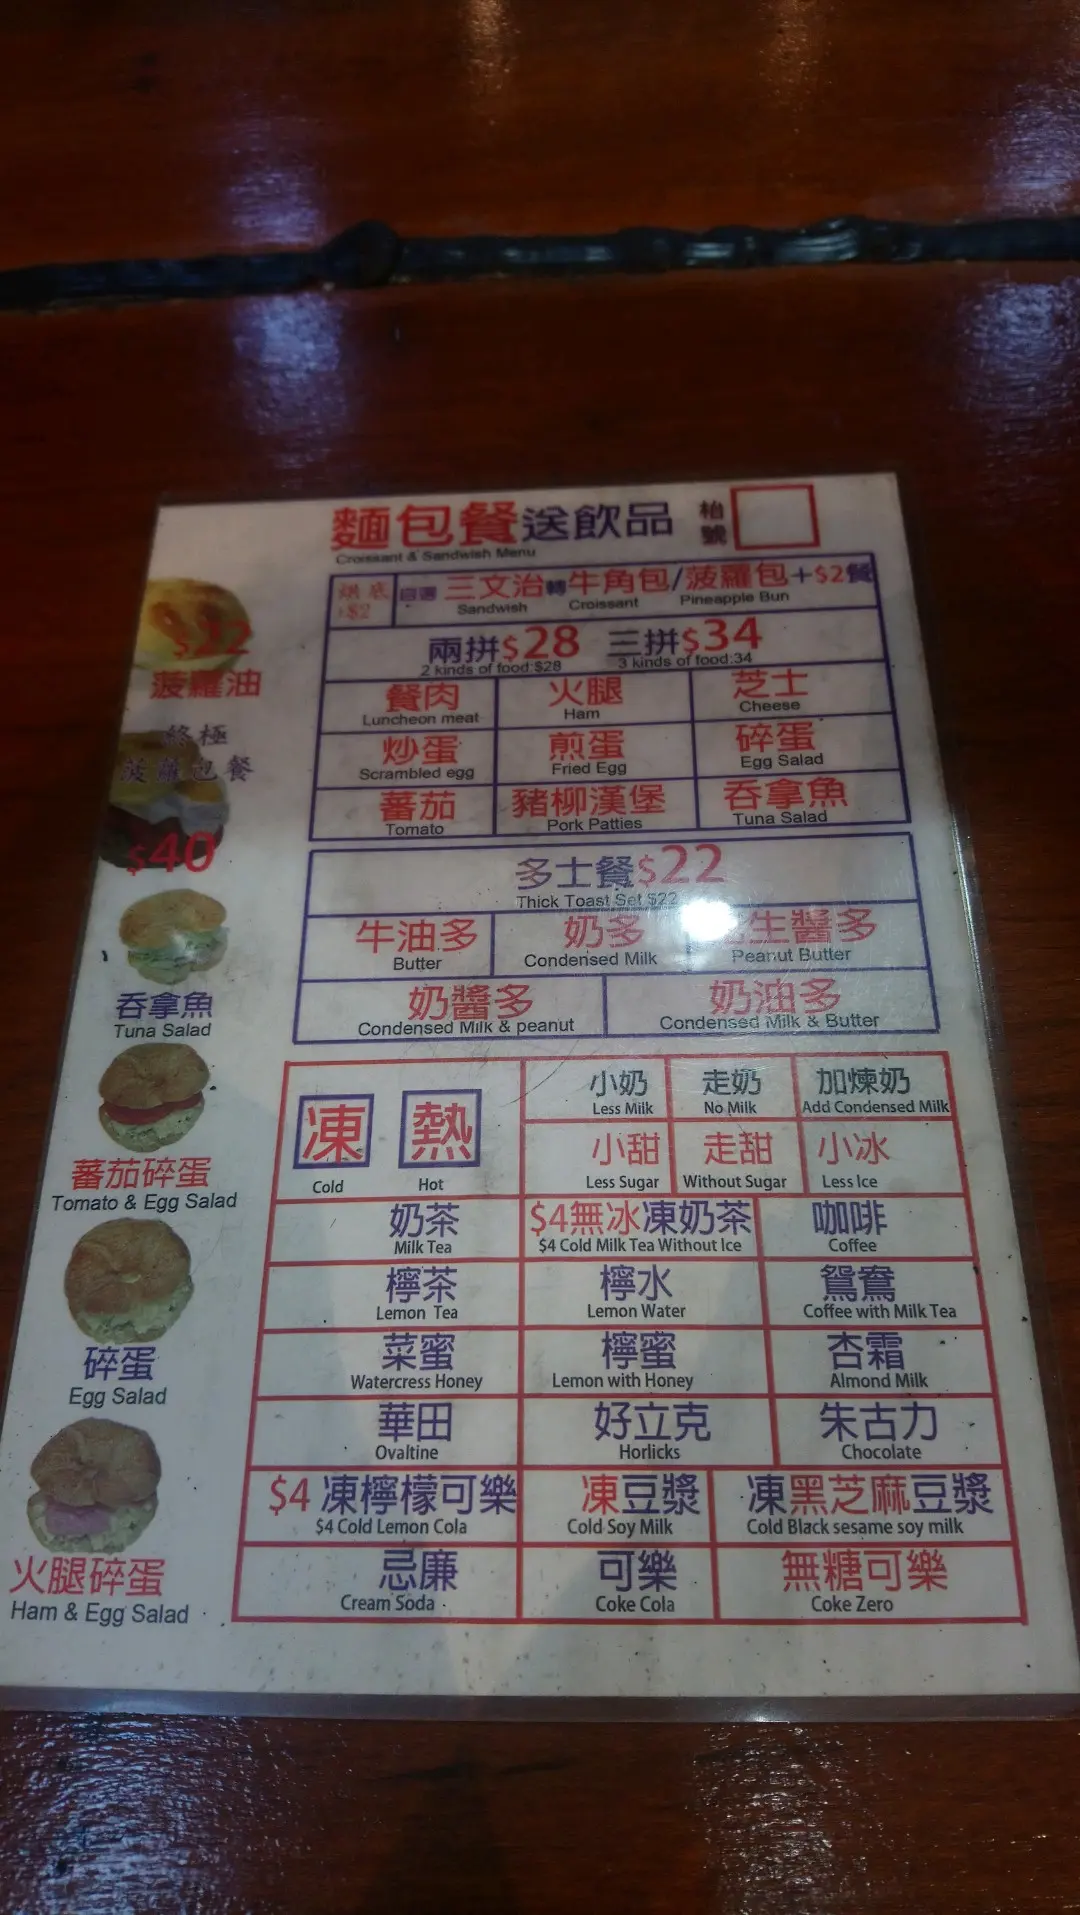 麵包餐送飲品 枱號
Croissant & Sandwish Menu
烘底 +$2
自選 三文治轉牛角包/菠蘿包+$2餐
Sandwish Croissant Pineapple Bun
兩拼$28 三拼$34
2 kinds of food:$28 3 kinds of food:34
餐肉 火腿 芝士
Luncheon meat Ham Cheese
炒蛋 煎蛋 碎蛋
Scrambled egg Fried Egg Egg Salad
蕃茄 豬柳漢堡 吞拿魚
Tomato Pork Patties Tuna Salad
多士餐$22
Thick Toast Set $22
牛油多 奶多 生醬多
Butter Condensed Milk Peanut Butter
奶醬多 奶油多
Condensed Milk & peanut Condensed Milk & Butter
凍 熱
Cold Hot
小奶 走奶 加煉奶
Less Milk No Milk Add Condensed Milk
小甜 走甜 小冰
Less Sugar Without Sugar Less Ice
奶茶 $4無冰凍奶茶 咖啡
Milk Tea $4 Cold Milk Tea Without Ice Coffee
檸茶 檸水 鴛鴦
Lemon Tea Lemon Water Coffee with Milk Tea
菜蜜 檸蜜 杏霜
Watercress Honey Lemon with Honey Almond Milk
華田 好立克 朱古力
Ovaltine Horlicks Chocolate
$4 凍檸檬可樂 凍豆漿 凍黑芝麻豆漿
$4 Cold Lemon Cola Cold Soy Milk Cold Black sesame soy milk
忌廉 可樂 無糖可樂
Cream Soda Coke Cola Coke Zero
$22
菠蘿油
終極
菠蘿包餐
$40
吞拿魚
Tuna Salad
蕃茄碎蛋
Tomato & Egg Salad
碎蛋
Egg Salad
火腿碎蛋
Ham & Egg Salad